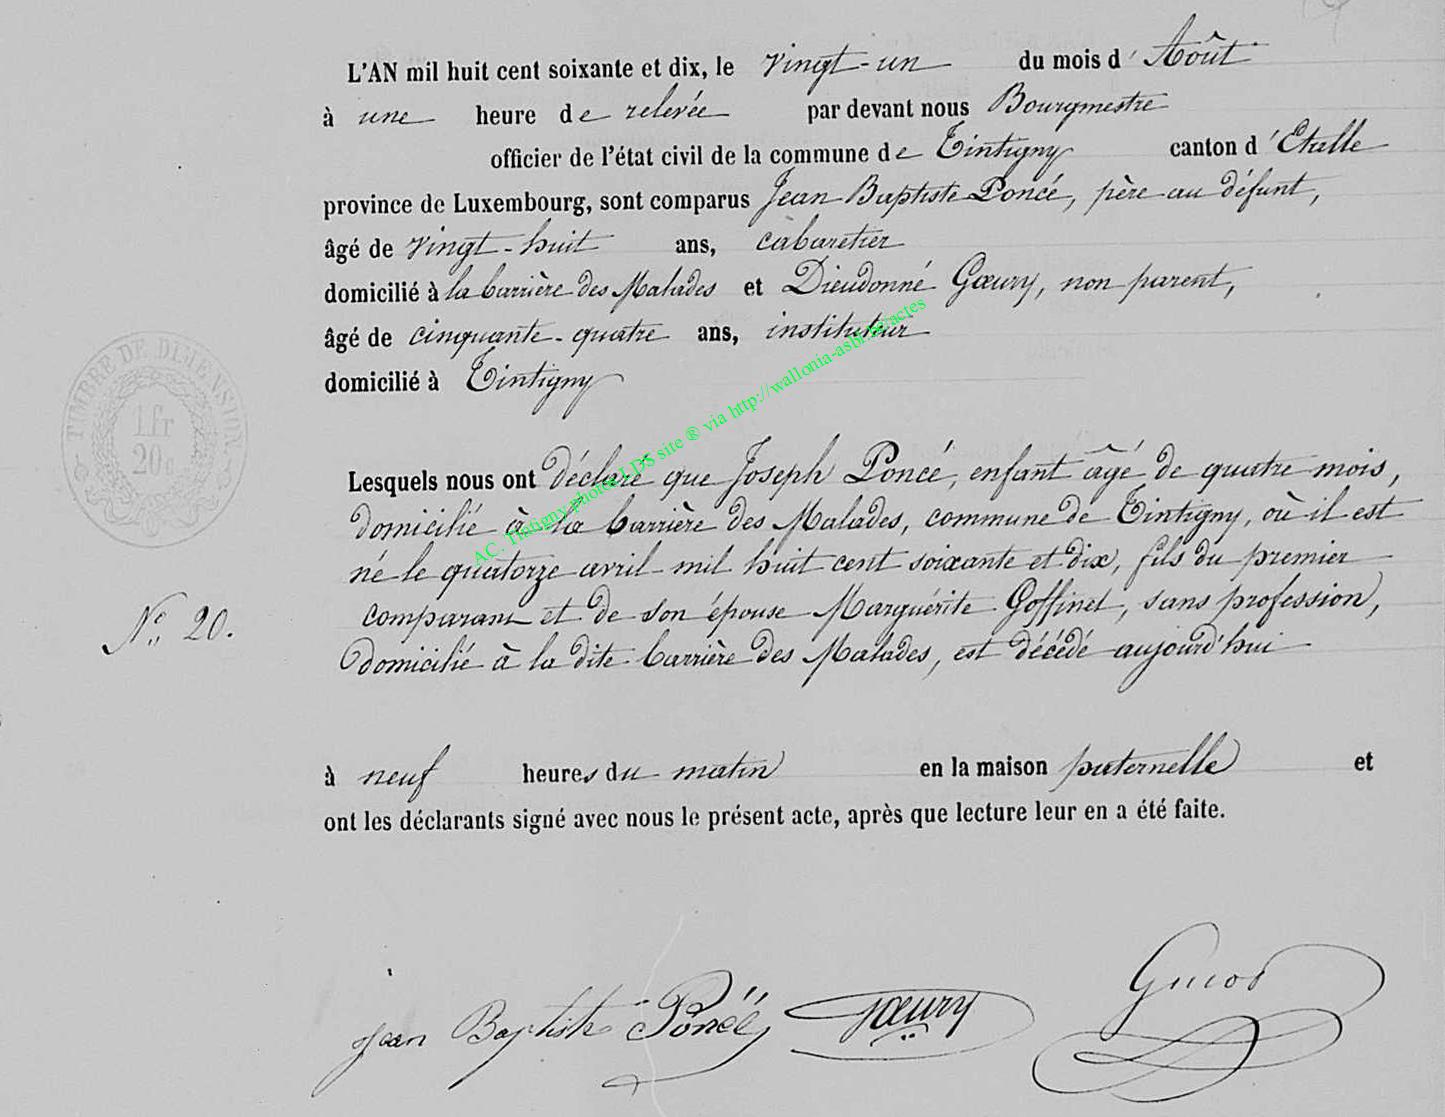 L'AN mil huit cent soixante et dix, le vingt-un du mois d'Août
à une heure de relevée par devant nous Bourgmestre
officier de l'état civil de la commune de Tintigny canton d'Etalle
province de Luxembourg, sont comparus Jean Baptiste Poncé, père au défunt,
âgé de vingt-huit ans, cabaretier
domicilié à la barrière des Malades et Dieudonné Gœury, non parent,
âgé de cinquante-quatre ans, instituteur
domicilié à Tintigny
TIMBRE DE DIMENSION
1 fr
20 c
Lesquels nous ont déclaré que Joseph Poncé, enfant âgé de quatre mois,
domicilié à la barrière des Malades, commune de Tintigny, où il est
né le quatorze avril mil huit cent soixante et dix, fils du premier
comparant et de son épouse Marguérite Goffinet, sans profession,
domicilié à la dite barrière des Malades, est décédé aujourd'hui
N° 20.
à neuf heures du matin en la maison paternelle et
ont les déclarants signé avec nous le présent acte, après que lecture leur en a été faite.
Jean Baptiste Poncé Gœury
AC. Tintigny photos LDS site ® via http://wallonia-asbl.be/actes